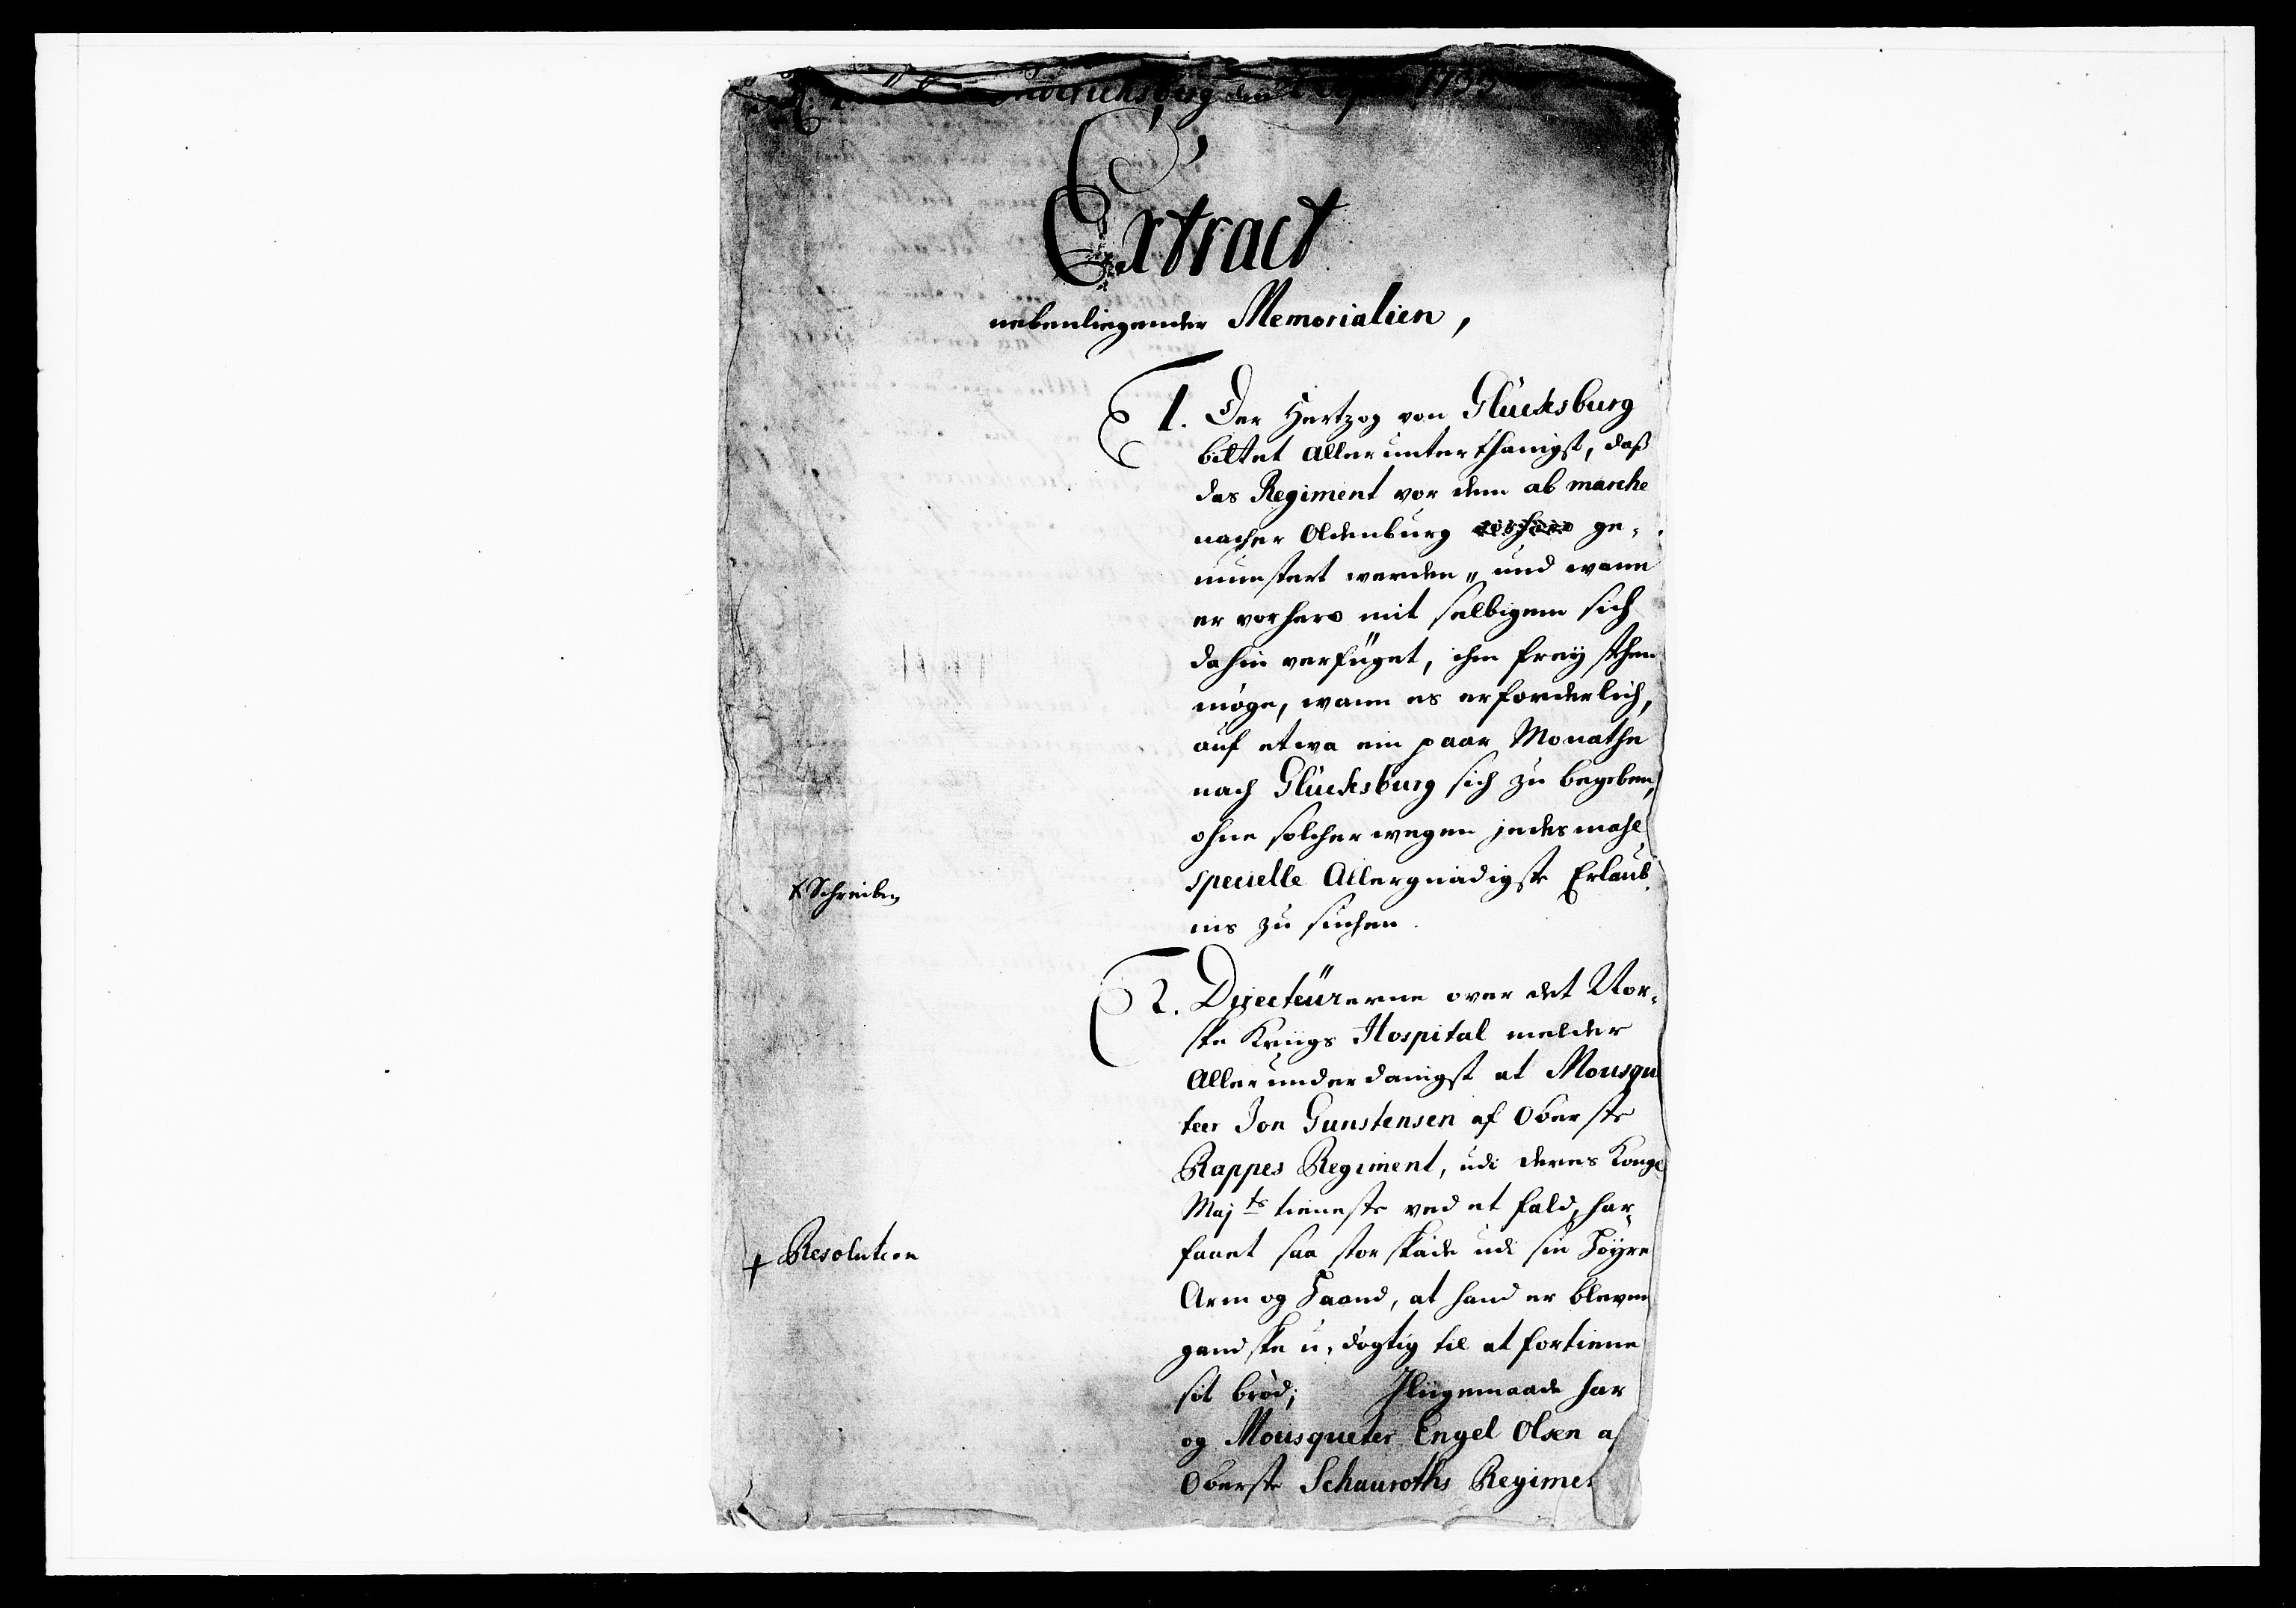 Friderichsberg den
Extract
nebenliegender Memorialien,
1. Der Hertzog von Glücksburg
bittet allerunterthänigst, daß
das Regiment vor dem ab marche
nacher Oldenburg ge-
munstert werden, und wann
er vorhero mit selbigem sich
dahin verfüget, ihm frey stehen
möge, wann es erforderlich,
auf etwa ein paar Monathe
nach Glücksburg sich zu begeben,
ohne solcher wegen jedesmahl
specielle Allergnädigste Erlaub-
nis zu suchen.
x Schreiben
2. Directeürerne over det Nor-
ske Kriigs Hospital melder
Allerunderdanigst at Mousque
teer Jon Gunstensen af Oberste
Rappes Regiment, udi deres Kongl
Maj ts tieneste ved et fald, har
faaet saa stor skade udi sin Høyre
Arm og Haand, at hand er bleven
gandske u-dygtig til at fortiene
sit brød; Iligemaade har
og Mousqueter Engel Olsen af
Oberste Schauroths Regiment
+ Resolution